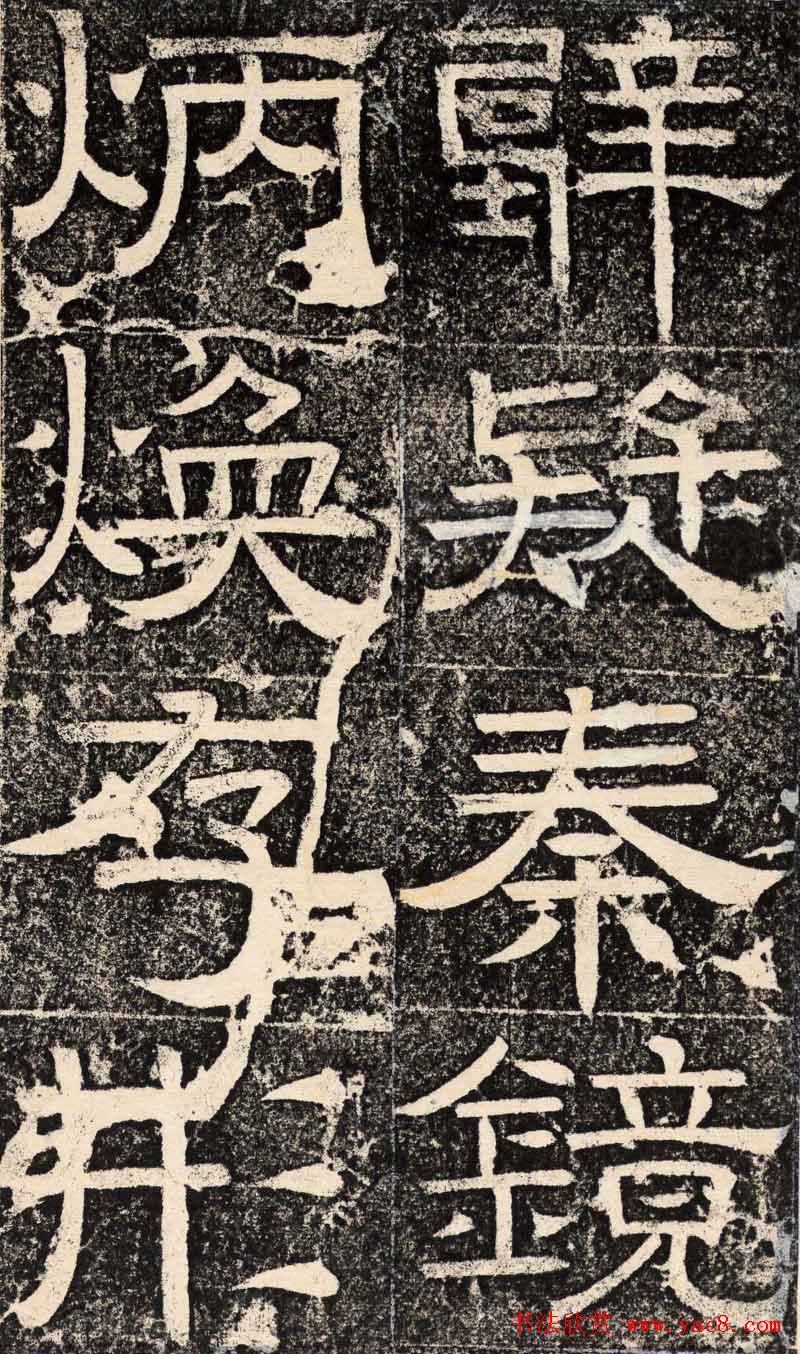 疑秦鏡
炳煥存形
书法欣赏 www.yac8.com